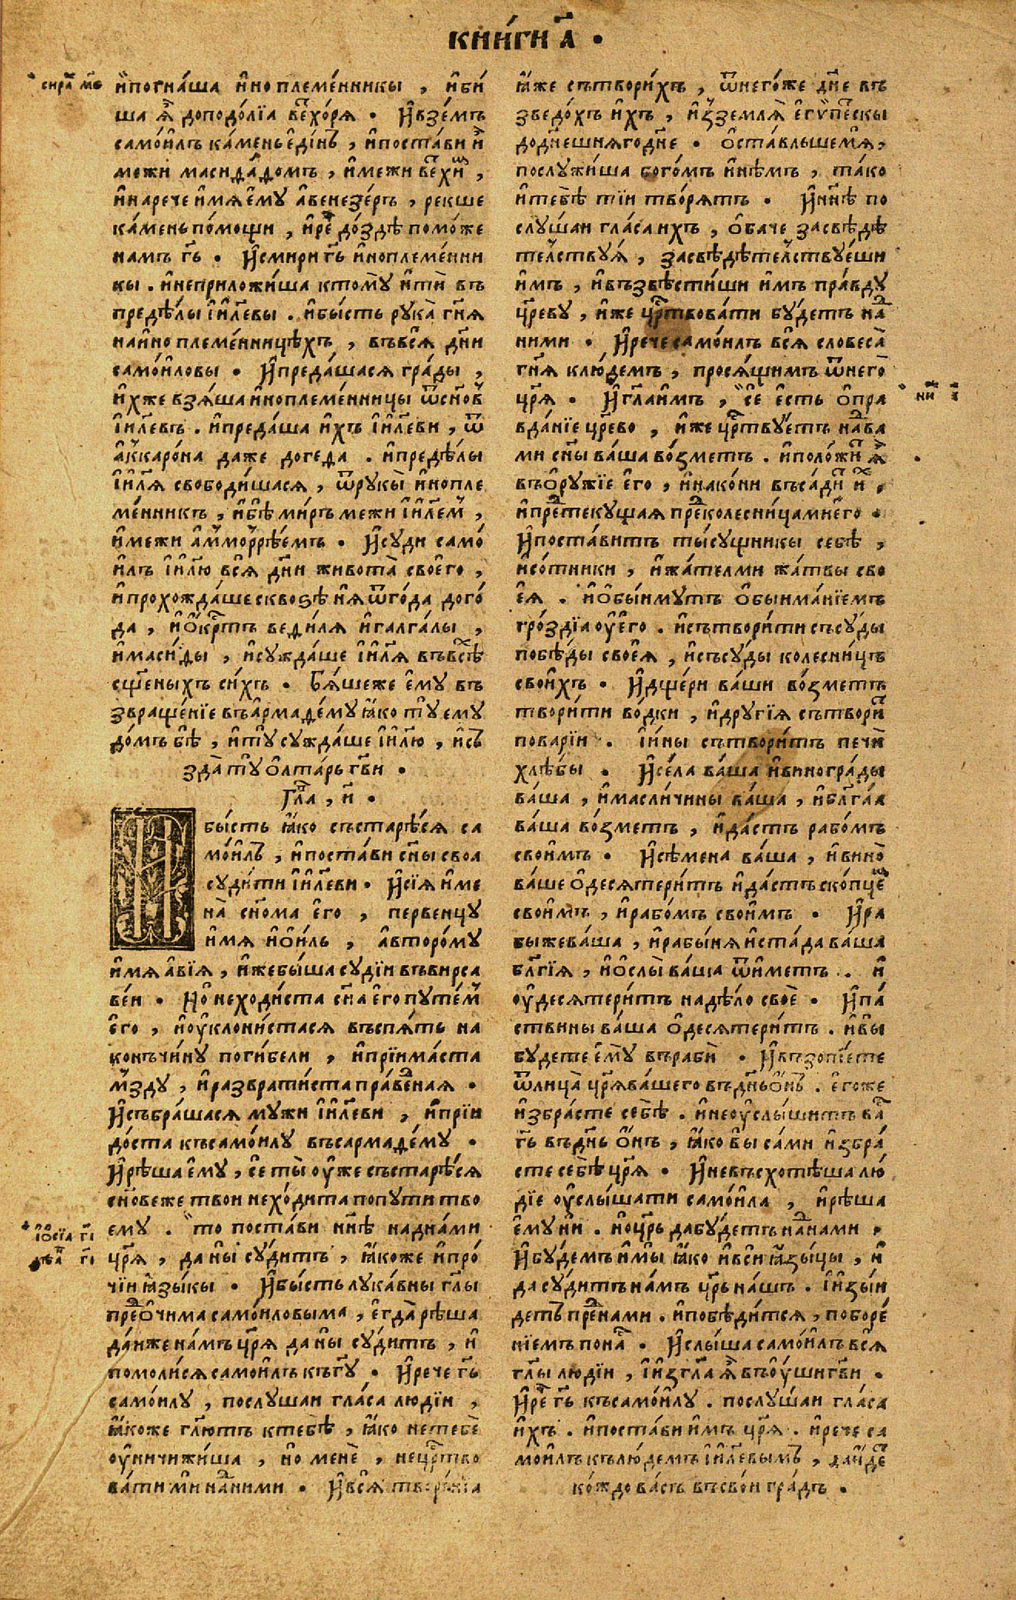 книги а҃ .
сира҃ мѕ
и҆погна́ша и҆ноплеме́нники , и҆би́
ша ѧ҆̀ доподо́лїа ве҆хо́рѧ . И҆взе́мъ
само́илъ ка́мень е҆ди́нъ , и҆поста́ви и҆̀
межи масида́домъ , и҆межи ве҆хи ,
и҆нарече и҆мѧ е҆му а҆венезе́ръ , рекше
ка́мень по́мощи , и҆ре҆ до́здѣ помо́же
намъ г҃ь . И҆смири г҃ь и҆ноплеме́нни
кы . и҆неприложи́ша ктому̀ и҆тѝ въ
преде҆́лы і҆и҃левы . и҆бы́сть рука̀ гн҃ѧ
наи҆ноплеме́нницѣхъ , въвсѧ̀ дн҃и
само́иловы . И҆преда́шасѧ гра́ды ,
и҆хже взѧ́ша и҆ноплеме́нницы ѿсн҃о́въ
і҆и҃левъ . и҆преда́ша и҆хъ і҆и҃леви , ѿ
а҆ккаро́на даже догеда . и҆преде́лы
і҆и҃лѧ свободи́шасѧ , ѿрукы̀ и҆нопле
ме́нникъ , и҆бѣ̀ ми́ръ межи і҆и҃лемъ ,
и҆межи а҆мморрѣ́емъ . И҆суди само́
илъ і҆и҃лю всѧ̀ дн҃и живота̀ своего̀ ,
и҆прохожда́ше сквозѣ и҆ѧ̀ ѿго́да дого́
да , и҆ѻ҆́крⷭ҇тъ веди́лѧ и҆галга́лы ,
и҆маси́ды , и҆сужда́ше і҆и҃лѧ въвсѣ
сщ҃еныхъ си́хъ . Бѧ́шеже е҆му въ
звраще́нїе въармаде́му ꙗ҆ко ту̀ ему
до́мъ бѣ̀ , и҆ту̀ сужда́ше і҆и҃лю , и҆съ
зда̀ ту̀ ѻ҆лта́рь гв҃и .
Гла҃ , и҃ .
И҆ бы́сть ꙗ҆ко съста́рѣсѧ са
мо́илъ , и҆поста́ви сн҃ы своа
суди́ти і҆и҃леви . И҆сїѧ̀ и҆ме
на̀ сн҃ома е҆го , первенцу
и҆мѧ и҆ѻ҆́иль , а҆второ́му
и҆мѧ а҆ві́ѧ , и҆жебы́ша судїи въвирса
ве́и . Но̀ неходи́ста сн҃а е҆го путе́мъ
е҆го , и҆оу҆клони́стасѧ въспѧ́ть на
конъчи́ну погибели , и҆прїима́ста
мзду , и҆разврати́ста пра́веⷣнаѧ .
И҆събра́шасѧ му́жи і҆и҃леви , и҆прїи
до́ста къ само́илу въсармаде́му .
И҆рѣ́ша е҆му , се ты̀ оу҆же съста́рѣсѧ
сн҃ове же твои нехо́дита попути тво
ему . то̀ поста́ви нн҃ѣ наⷣнами
цр҃ѧ , да ны̀ су́дитъ , ꙗ҆коже и҆про́
чїи ꙗ҆зы́кы . И҆бы́сть лука́вны гл҃ы
преⷣѻ҆чима само́иловыма , е҆гда̀ рѣ́ша
да́иже на́мъ цр҃ѧ да ны̀ су́дитъ , и҆
помоли́сѧ само́илъ къ гу҃ . И҆рече г҃ь
само́илу , послушаи гла́са людїи ,
ꙗ҆коже гл҃ютъ ктебѣ̀ , ꙗ҆ко нетебѐ
оу҆ничижи́ша , но̀ менѐ , нецрⷭ҇тво
вати мѝ наⷣними . И҆всѧ̀ творе́нїа
і҆ѻ҆сїа гі҃
дѣа҃ гі҃
ꙗ҆же сътвори́хъ , ѿнего́же дн҃е въ
зведо́хъ и҆хъ , и҆зземлѧ̀ е҆гѵ́пескы
доднешнѧгоднѐ . ѻ҆ста́вльшемѧ ,
послужи́ша бого́мъ и҆нѣ́мъ , та́ко
и҆тебѣ̀ тїи творѧ́тъ . И҆нн҃ѣ по
слу́шаи гла́са и҆хъ , ѻ҆баче засвѣдѣ́
те҆лствуѧ , засвѣдѣ́телствуеши
и҆мъ , и҆възвѣсти́ши и҆мъ пра́вду
цр҃еву , и҆же црⷭ҇твова́ти бу́детъ наⷣ
ними . И҆рече само́илъ всѧ̀ словеса̀
гн҃ѧ клю́демъ , просѧ́щимъ ѿнего̀
цр҃ѧ . И҆гл҃а и҆мъ , се є҆сть ѻ҆пра
вда́нїе цр҃ево , и҆же црⷭ҇твуетъ наⷣва
ми сн҃ы ва́ша во́зметъ . и҆поло́жи ѧ҆̀
въѻ҆ру́жїе е҆го , и҆нако́ни въса́дитъ и҆х ,
и҆преⷣтекущаѧ преⷣколесни́цами е҆го .
И҆поста́витъ ты́сущникы себѣ̀ ,
и҆со́тники , и҆жа́телми жа́твы сво
еѧ̀ . и҆ѻ҆быи́мутъ ѻ҆быима́нїемъ
гро́здїа оу҆его̀ . и҆сътвори́ти съсу́ды
побѣ́ды своеѧ̀ , и҆съсу́ды колесни́цъ
свои́хъ . И҆дще́ри ва́ши во́зметъ
твори́ти во́дки , и҆други́ѧ сътвори́тъ
пова́рїи . і҆и́ны сътвори́тъ печи́
хлѣ́бы . И҆се́ла ва́ша и҆виногра́ды
ва́ша , и҆ма́сличины ва́ша , и҆блага́ѧ
ва́ша во́зметъ , и҆да́стъ рабо́мъ
свои́мъ . И҆сѣ́мена ва́ша , и҆вино̀
ва́ше ѻ҆десѧтери́тъ и҆да́стъ скопце́мъ
свои́мъ , и҆рабо́мъ свои́мъ . И҆ра
бы же ва́ша , и҆рабы́нѧ и҆ста́да ва́ша
бл҃гїѧ , и҆ѻ҆слы̀ ва́ша ѿи҆метъ . и҆
оу҆десѧтери́тъ надѣ́ло своѐ . И҆па́
ствины ва́ша ѻ҆десѧтери́тъ . и҆вы̀
будете е҆му̀ въ рабѝ . И҆възопїете
ѿлица̀ цр҃ѧ ва́шего въ дн҃ь ѻ҆́нъ . е҆гоже
и҆збра́сте себѣ̀ . и҆неоу҆слы́шитъ ваⷭ
г҃ь въ дн҃ь ѻ҆́нъ , ꙗ҆ко вы са́ми и҆збра́
сте себѣ̀ цр҃ѧ . И҆невъсхотѣ́ша лю́
дїе оу҆слы́шати само́ила , и҆рѣ́ша
е҆му ни . но̀ цр҃ь да бу́детъ наⷣнами .
И҆бу́демъ и҆мы̀ ꙗ҆ко и҆всѝ ꙗ҆зы́цы , и҆
да су́дитъ на́мъ цр҃ь на́шъ . і҆изыи́
детъ преⷣнами . и҆побѣди́тсѧ , поборе́
нїемъ по наⷭ . И҆слы́ша само́илъ всѧ̀
гл҃ы лю́дїи , і҆изгла҃ ѧ҆̀ въ ѻ҆у́ши гв҃и .
И҆ре҆ г҃ь къ само́илу . послу́шаи гла́са
и҆хъ . и҆поста́ви и҆мъ цр҃ѧ . и҆рече са
мо́илъ клю́демъ і҆и҃левымъ , да и҆́де
ко́ждо ва́съ въ сво́и гра́дъ .